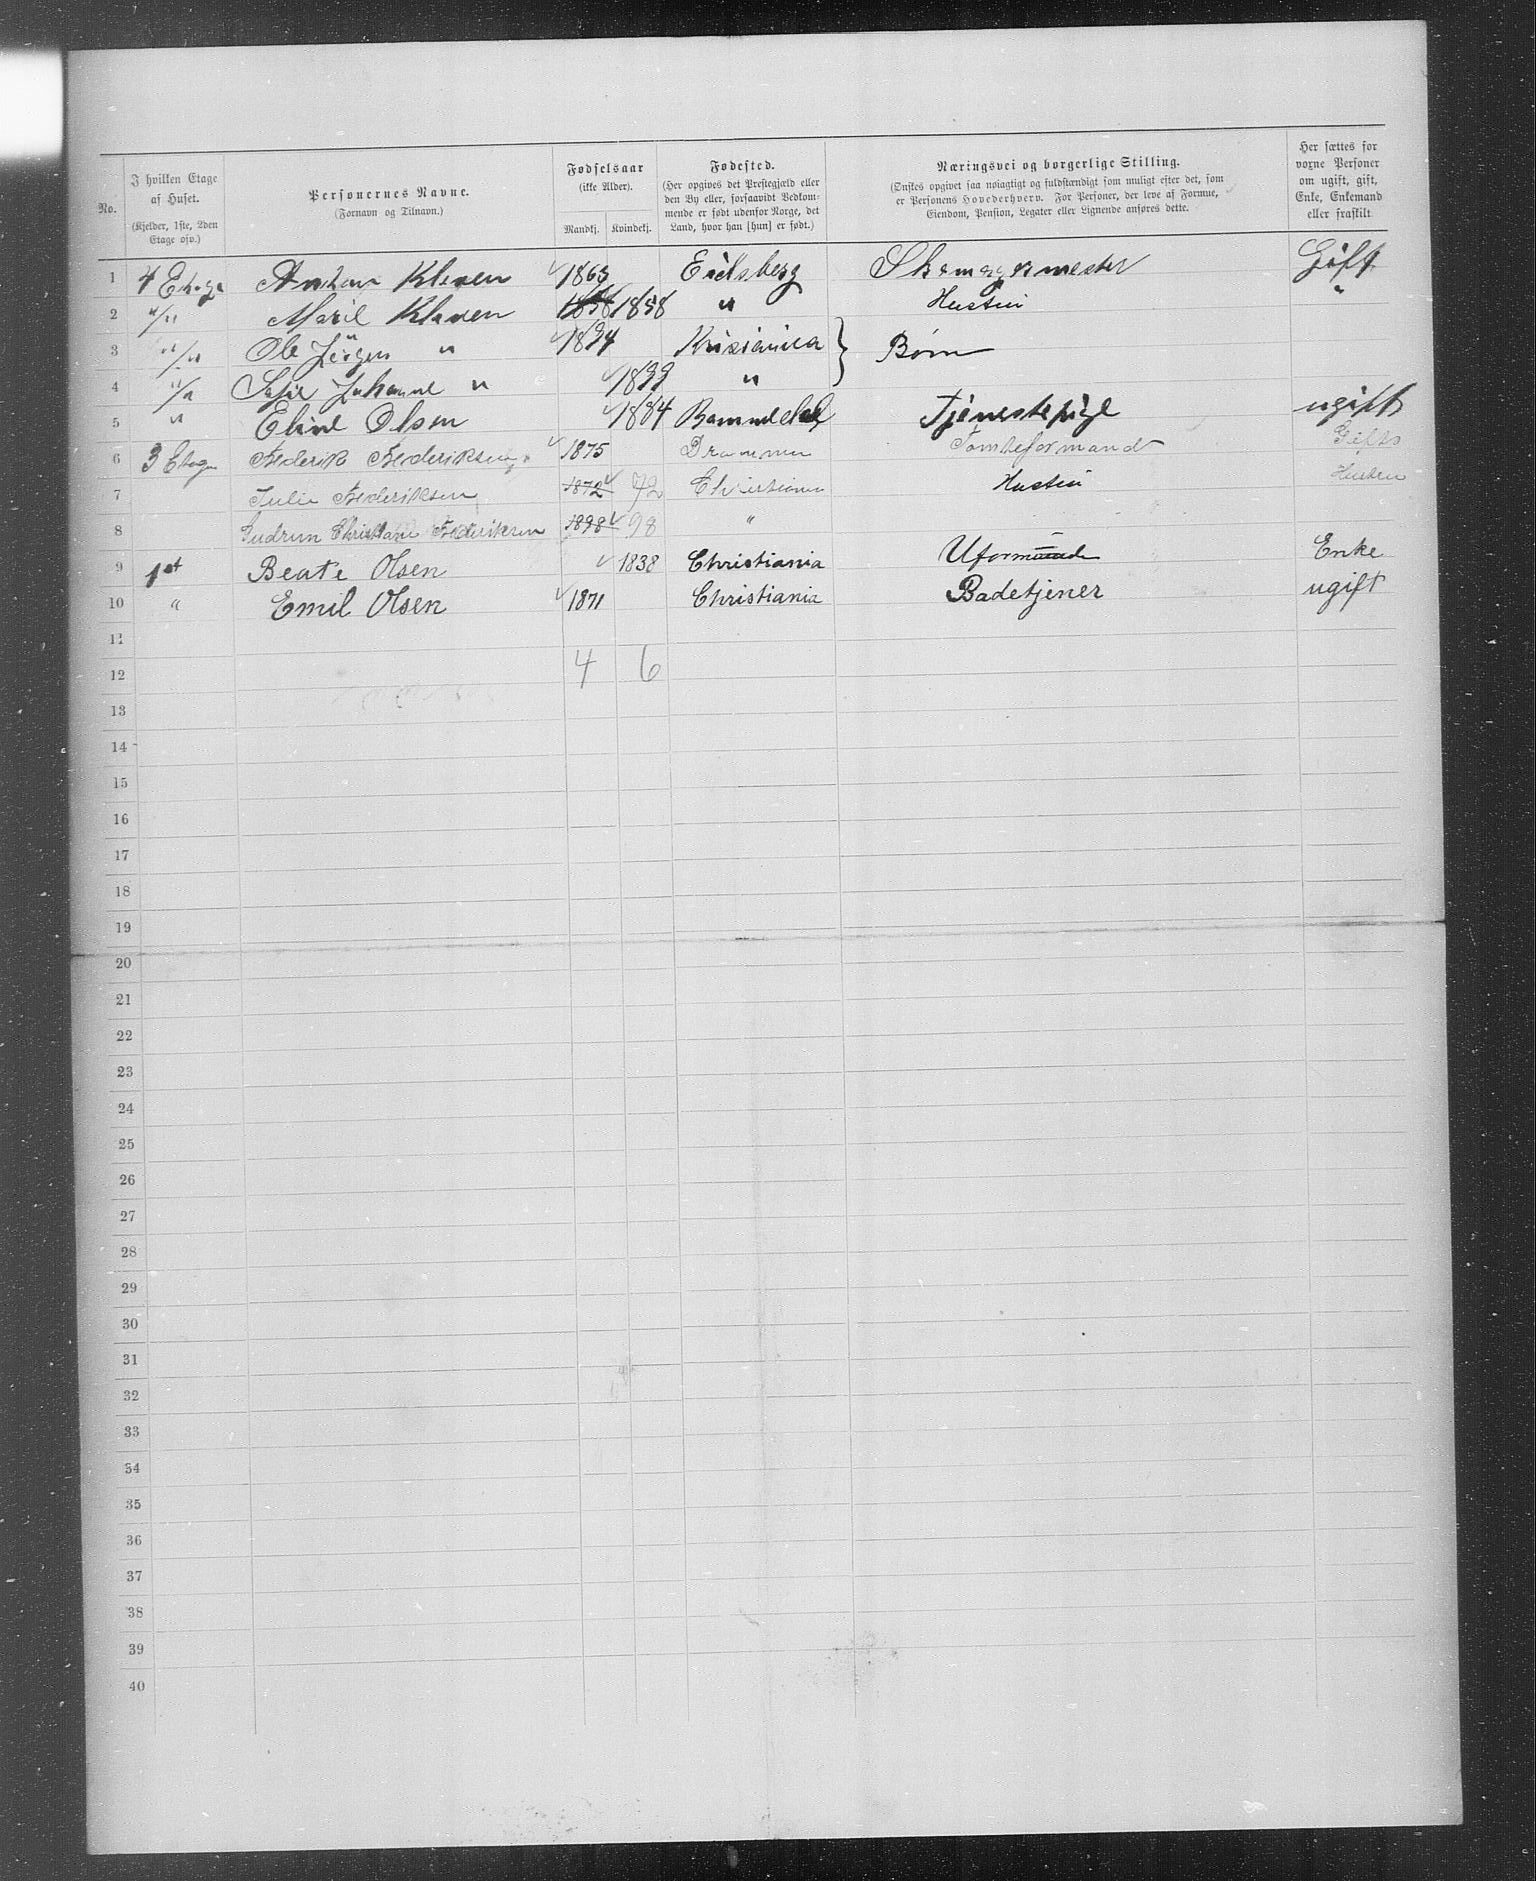 No. I hvilken Etage af Huset. (Kjelder, 1ste, 2den Etage osv.) Personernes Navne. (Fornavn og Tilnavn.) Fødselsaar (ikke Alder). Mandkj. Kvindekj. Fødested. (Her opgives det Prestegjæld eller den By eller, forsaavidt Vedkommende er født udenfor Norge, det Land, hvor han [hun] er født.) Næringsvei og borgerlige Stilling. (Ønskes opgivet saa nøiagtigt og fuldstændigt som muligt efter det, som er Personens Hovederhverv. For Personer, der leve af Formue, Eiendom, Pension, Legater eller Lignende anføres dette. Her sættes for voxne Personer om ugift, gift, Enke, Enkemand eller fraskilt
1 4 Etage Anton Klaven 1863 Eidsberg Skomagermester Gift
2 "/" Marie Klaven 1858 1858 " Hustru "
3 "/" Ole Jørgen " 1894 Kristiania } Børn
4 "/" Sofie Johanne " 1899 "
5 " Eline Olsen 1884 Bamme Tjenestepige ugift
6 3 Etage Frederik Frederiksen 1875 Drammen Tomteformand Gift
7 Julie Frederiksen 1872 72 Christiania Hustru
8 Gudrun Frederiksen 1898 98 "
9 1st Beate Olsen 1838 Christiania Uformuende Enke
10 " Emil Olsen 1871 Christiania Badetjener ugift
11
12 4 6
13
14
15
16
17
18
19
20
21
22
23
24
25
26
27
28
29
30
31
32
33
34
35
36
37
38
39
40